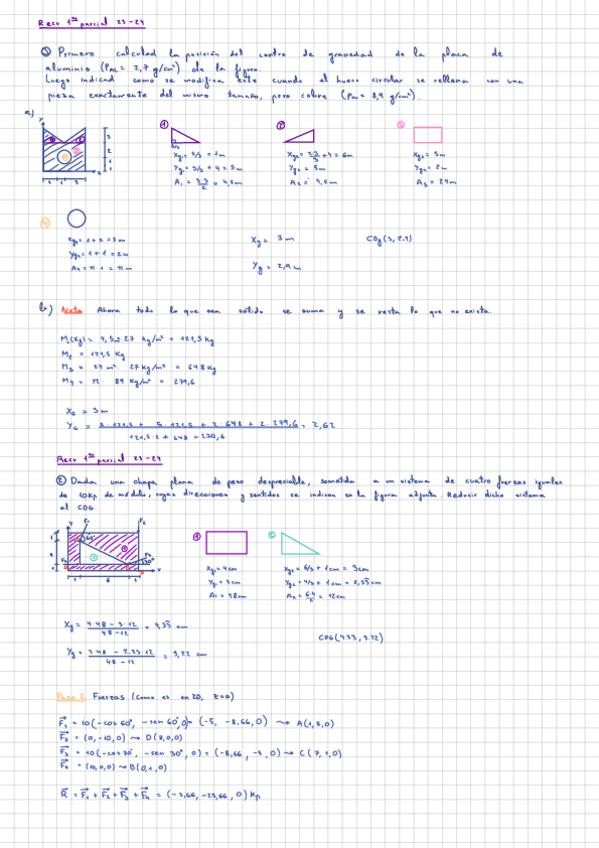 Recu 1er parcial 23-24
① Primero calculad la posición del centro de gravedad de la placa de
aluminio (ρAL = 2,7 g/cm³) de la figura.
Luego indicad como se modifica este cuando al hueco circular se rellena con una
pieza exactamente del mismo tamaño, pero cobre (ρ = 8,9 g/cm³).
a)
① ② ③
Xg = 3/3 = 1m
Yg = 3/3 + 4 = 5m
A1 = 3·3/2 = 4,5m
Xg2 = 2·3/3 + 4 = 6m
Yg2 = 5m
A2 = 4,5m
Xg3 = 3m
Yg3 = 2m
A3 = 24m
④
Xg4 = 1 + 2 = 3m
Yg4 = 1 + 1 = 2m
A4 = π 1 = π m
Xg = 3m
Yg = 2,9m
CDg (3, 2,9)
b) Nota Ahora todo lo que sea sólido se suma y se resta lo que no exista.
M1(Kg) = 4,5m²·27 kg/m² = 121,5 Kg
M2 = 121,5 Kg
M3 = 24 m² 27 Kg/m² = 648 Kg
M4 = π 89 Kg/m² = 279,6
XG = 3m
YG = 5·121,5 + 5·121,5 + 2·648 + 2·279,6 = 2,62
121,5·2 + 648 + 279,6
Recu 1er parcial 23-24
② Dada una chapa plana de peso despreciable, sometida a un sistema de cuatro fuerzas iguales
de 10Kp de módulo, cuyas direcciones y sentidos se indican en la figura adjunta. Reducir dicho sistema
al CDG.
① ②
Xg = 4cm
Yg = 3cm
A1 = 48cm
Xg2 = 6/3 + 1cm = 3cm
Yg2 = 4/3 + 1cm = 2,33cm
A2 = 6·4/2 = 12cm
Xg = 4·48 - 3·12 / 48-12 = 4,33 cm
CDG (4,33, 3,22)
Yg = 3·48 - 2,33·12 / 48-12 = 3,22 cm
Paso 2 Fuerzas (como es en 2D, z=0)
F1 = 10(-cos 60°, -sen 60°, 0) = (-5, -8,66, 0) → A(1,5,0)
F2 = (0,-10,0) → D(8,0,0)
F3 = 10(-cos 30°, -sen 30°, 0) = (-8,66, -5, 0) → C(7,1,0)
F4 = (10,0,0) → D(0,1,0)
R = F1 + F2 + F3 + F4 = (-3,66, -23,66, 0) Kp